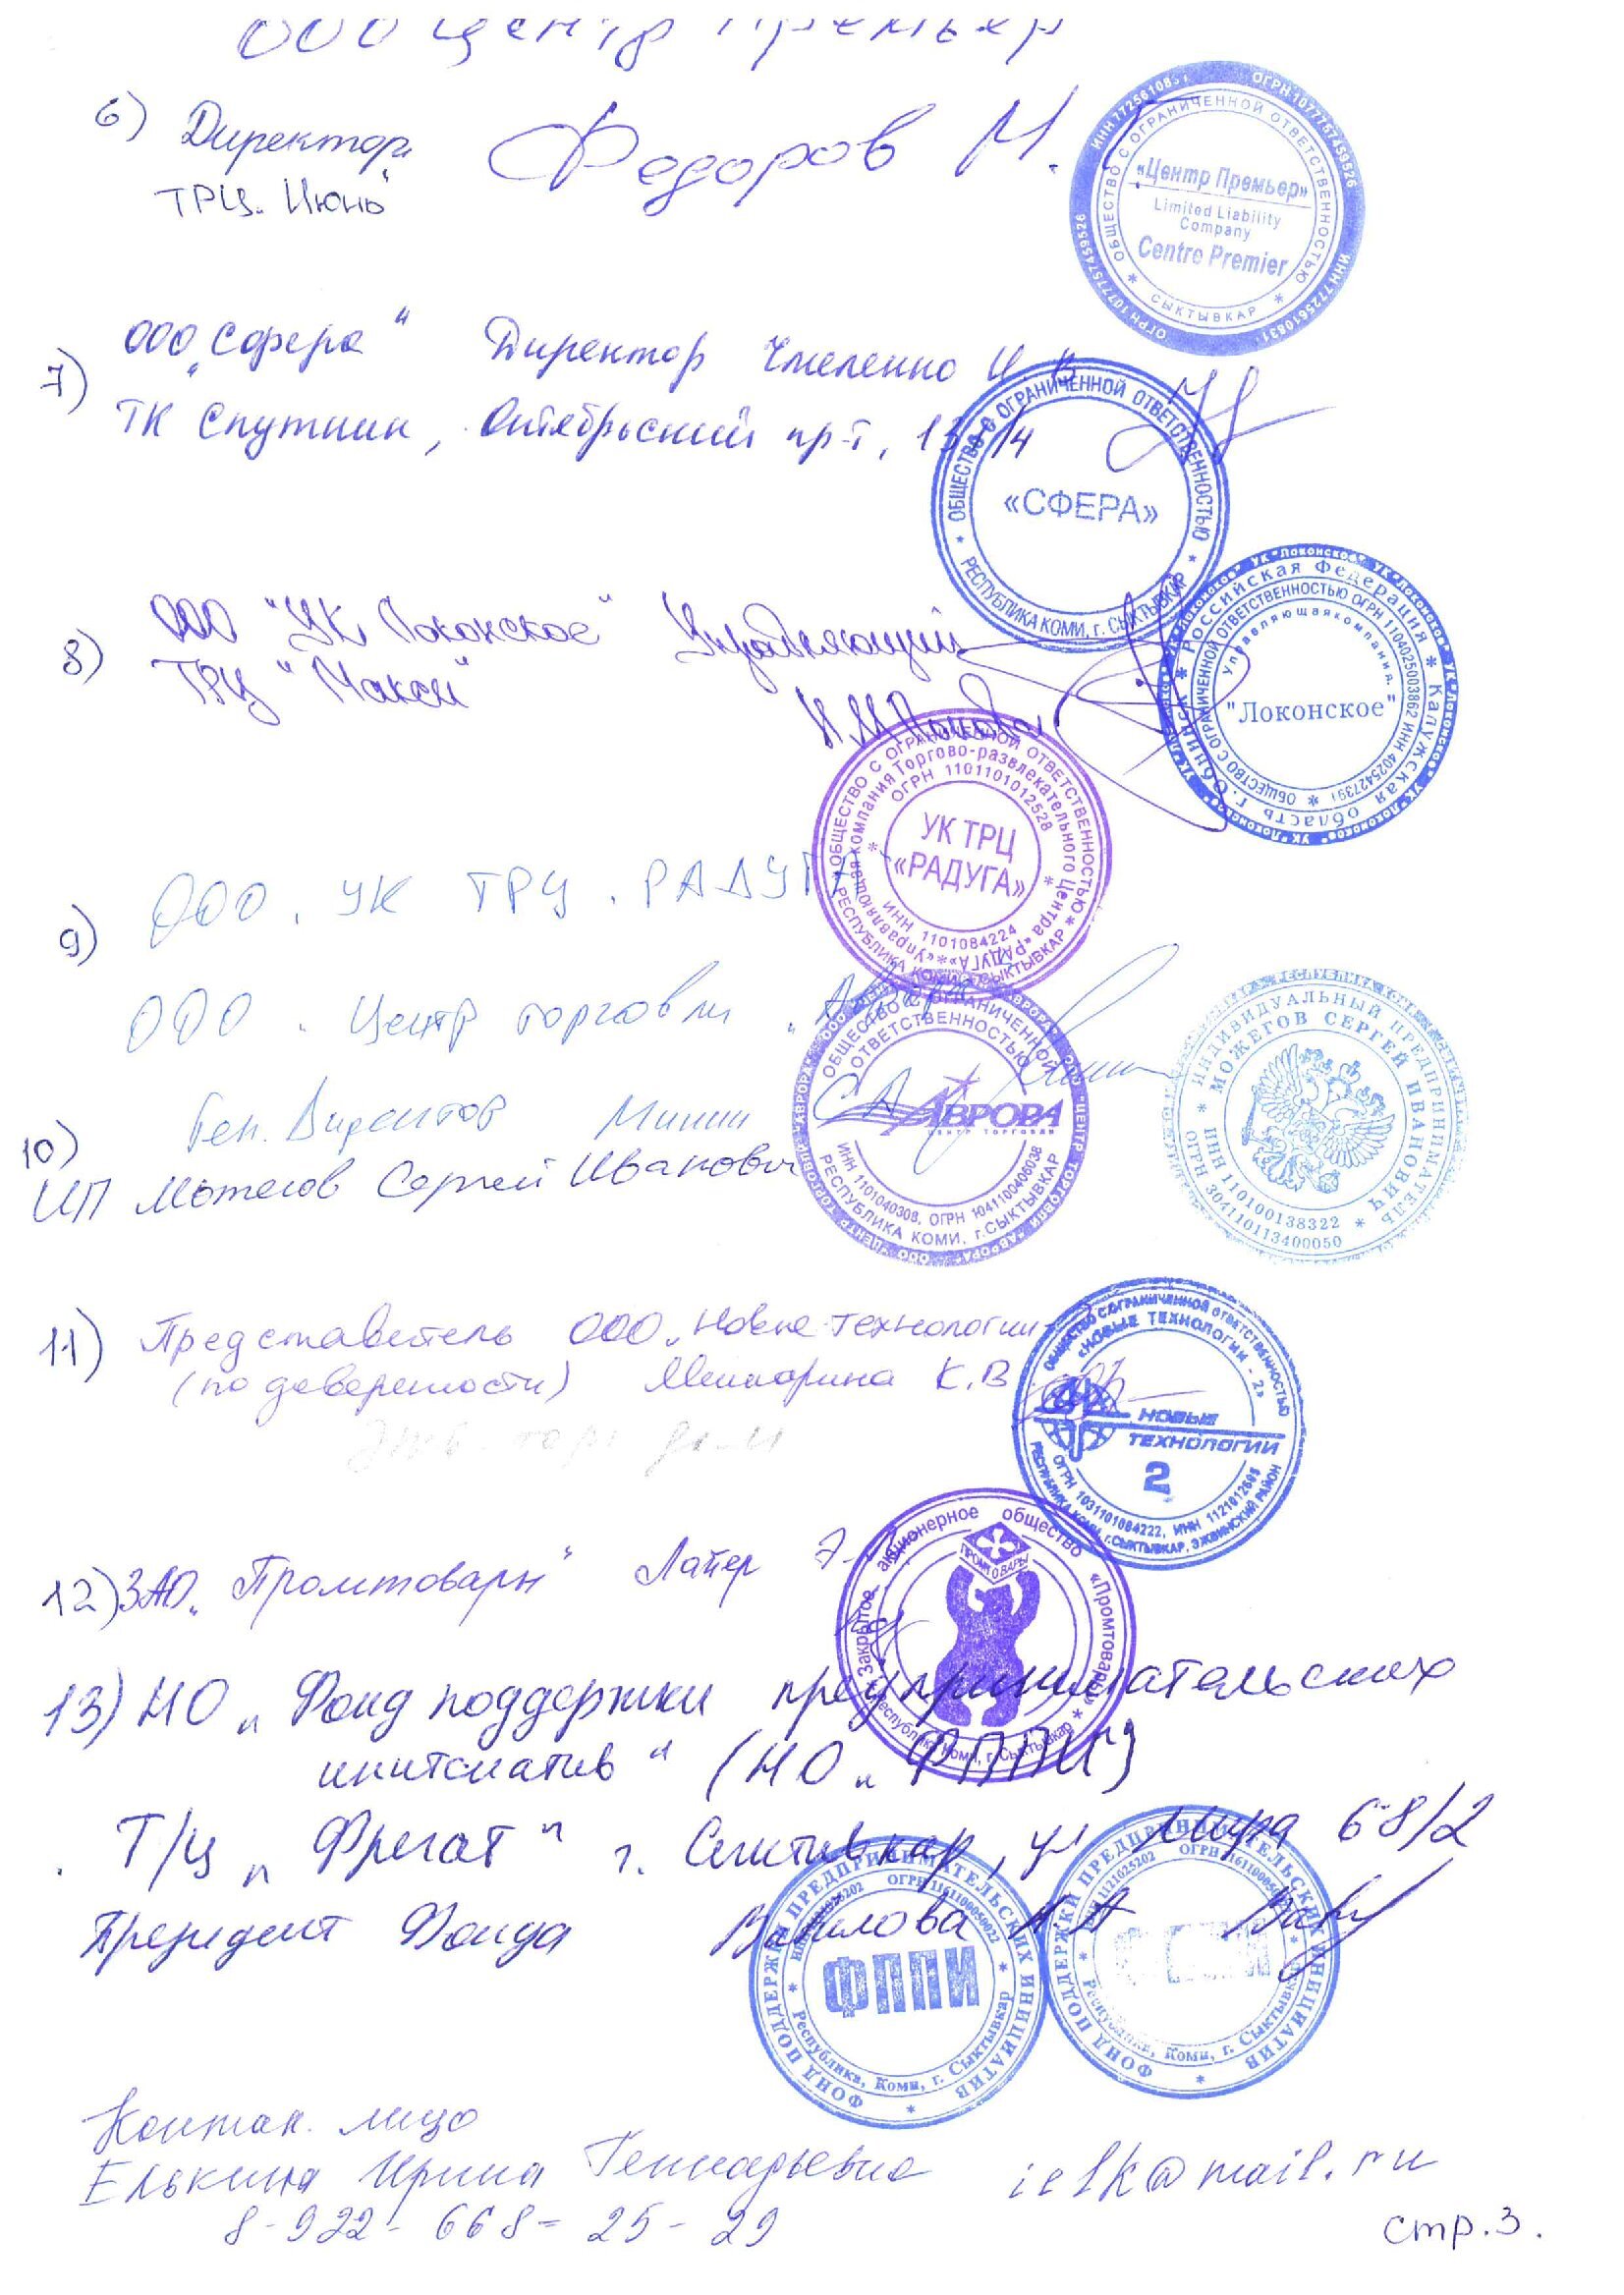 ООО Центр Премьер
6) Директор Федоров М. Г.
ТРЦ „Июнь"
ИНН 7725610831 ОГРН 1077757459526
ОБЩЕСТВО С ОГРАНИЧЕННОЙ ОТВЕТСТВЕННОСТЬЮ
«Центр Премьер»
Limited Liability
Company
Centre Premier
СЫКТЫВКАР
7) ООО „Сфера" Директор И. В.
ТК Спутник, Октябрьский пр-т,
ОБЩЕСТВО С ОГРАНИЧЕННОЙ ОТВЕТСТВЕННОСТЬЮ
«СФЕРА»
РЕСПУБЛИКА КОМИ, г. СЫКТЫВКАР
8) ООО "УК Локонское" Управляющий
ТРЦ "Макси"
УК "Локонское"
Российская Федерация * Калужская область г. Обнинск
ОБЩЕСТВО С ОГРАНИЧЕННОЙ ОТВЕТСТВЕННОСТЬЮ ОГРН 1104025003862 ИНН 4025427391
Управляющая компания
"Локонское"
9) ООО „УК ТРЦ „РАДУГА"
ОБЩЕСТВО С ОГРАНИЧЕННОЙ ОТВЕТСТВЕННОСТЬЮ
«Управляющая компания Торгово-развлекательного Центра «РАДУГА»
ОГРН 1101101012528
УК ТРЦ
«РАДУГА»
ИНН 1101084224
РЕСПУБЛИКА КОМИ г. СЫКТЫВКАР
ООО „Центр торговли „Аврора"
Ген. Директор Минин С А
ООО "ЦЕНТР ТОРГОВЛИ "АВРОРА"
ОБЩЕСТВО С ОГРАНИЧЕННОЙ
ОТВЕТСТВЕННОСТЬЮ
АВРОРА
ЦЕНТР ТОРГОВЛИ
ИНН 1101040308, ОГРН 1041100406038
РЕСПУБЛИКА КОМИ, г.СЫКТЫВКАР
10) ИП Можегов Сергей Иванович
ИНДИВИДУАЛЬНЫЙ ПРЕДПРИНИМАТЕЛЬ
МОЖЕГОВ СЕРГЕЙ ИВАНОВИЧ
ИНН 110100138322
ОГРН 304110113400050
11) Представитель ООО „Новые технологии-
(по доверенности) К.В
ОБЩЕСТВО С ОГРАНИЧЕННОЙ ОТВЕТСТВЕННОСТЬЮ
«НОВЫЕ ТЕХНОЛОГИИ - 2»
НОВЫЕ
ТЕХНОЛОГИИ
2
ОГРН 1031101084222, ИНН
РЕСПУБЛИКА КОМИ, г.СЫКТЫВКАР, ЭЖВИНСКИЙ РАЙОН
12) ЗАО „Промтовары"
Закрытое акционерное общество «Промтовары»
ПРОМТОВАРЫ
Республика Коми, г. Сыктывкар
13) НО „Фонд поддержки предпринимательских
инициатив" (НО „ФППИ")
Т/ц „Фрегат" г. Сыктывкар, ул Мира 68/2
Президент Фонда
ФОНД ПОДДЕРЖКИ ПРЕДПРИНИМАТЕЛЬСКИХ ИНИЦИАТИВ
ИНН 1121025202 ОГРН 1161100050022
ФППИ
Республика, Коми, г. Сыктывкар
ФОНД ПОДДЕРЖКИ ПРЕДПРИНИМАТЕЛЬСКИХ ИНИЦИАТИВ
Республика, Коми, г. Сыктывкар
Контак. лицо
Елькина Ирина Геннадьевна ielk@mail.ru
8-922-668-25-29
стр.3.